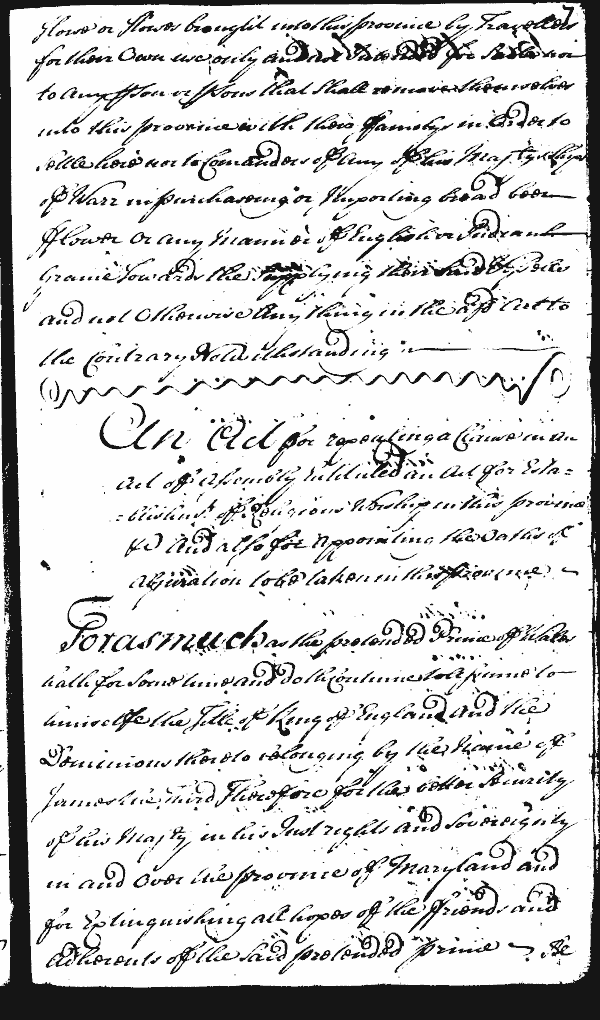 fflower or fflower brought into this province by Travellers
for their Own use only and not Intended for Sale nor
to any pson or psons that shall remove themselves
into this province with their familys in Order to
settle here nor to Comanders of Any of his Majtys Ships
of Warr in purchaseing or Importing bread beer
fflower Or any Manner of English or Indian
Graine Towards the supplying their Said
and not Otherwise Any thing in the afd Act to
the Contrary Notwithstanding
An Act for repealing a Clause in an
Act of Assembly Intituled an Act for Esta=
=blishmt. of Religious Worship in this province
&c And also for Appointing the Oaths of
Abjuration to be taken in this province
Forasmuch as the pretended Prince of Wales
hath for some time and doth Continue to Assume to
himselfe the Title of King of England And the
Dominions thereto belonging by the Name of
James the Third Therefore for the better Security
of his Majty in his Just rights and Sovereignty
in and Over the province of Maryland and
for Extinguishing all hopes of the ffriends and
Adherents of the Said pretended prince Be